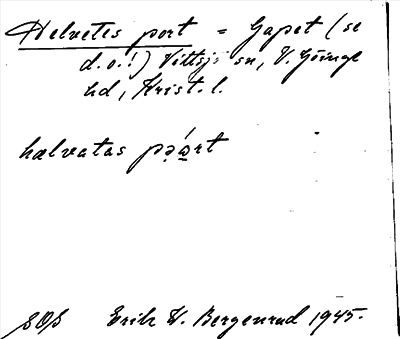 Helvetes port = Gapet (se
d.o.!) Vittsjö sn, V. Göinge
hd, Krist. l.
hælvatas pə̣ά̱rt
SOS Erik W. Bergenrud 1945.